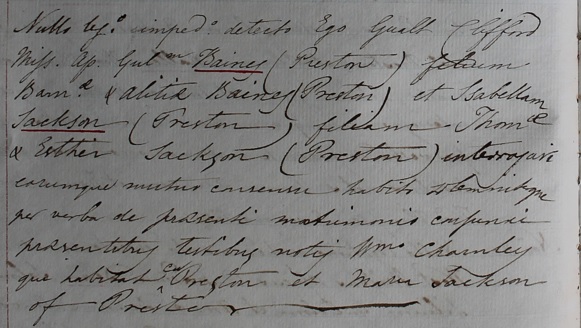 Nullo leg.o imped.o detecto Ego Gualt Clifford
Miss. Ap. Gul um Baines (Preston) filium
& Alitiæ Baines (Preston) et Isabellam
Jackson (Preston) filiam Thom æ
& Esther Jackson (Preston) interrogavi
eorumque mutuo consensu habito
per verba de præsenti matrimonio conjunxi
præsentibus testibus notis Wmo Charnley
qui habitat Preston et Maria Jackson
of Preston